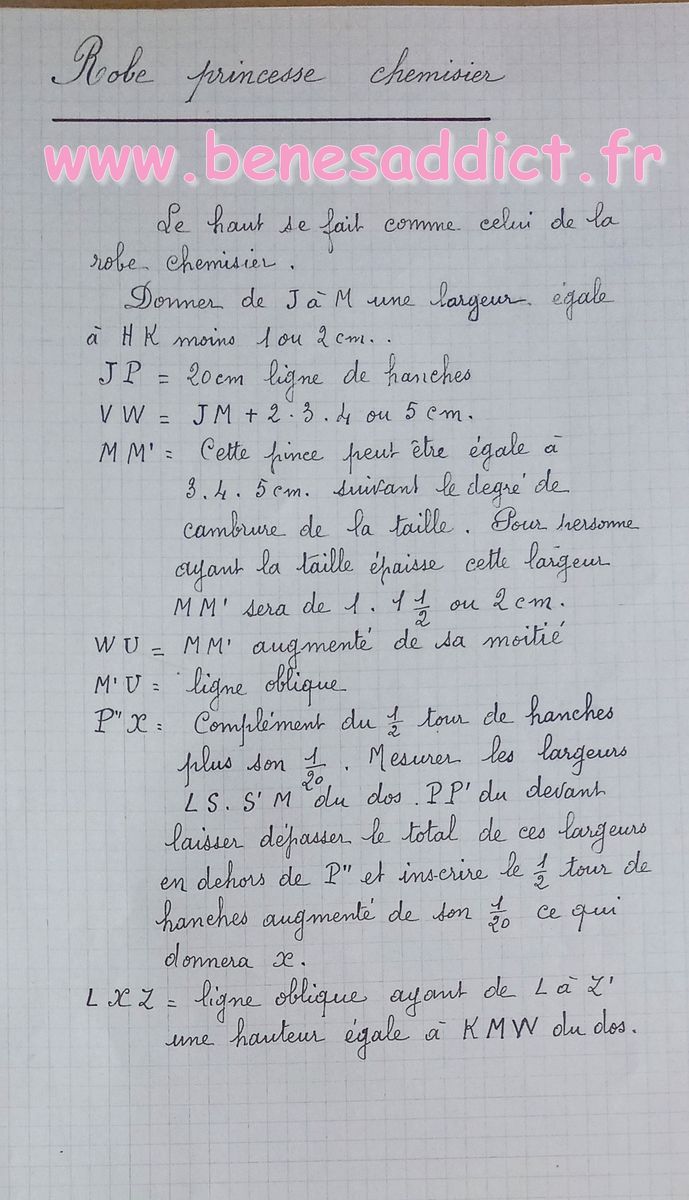 Robe princesse chemisier
www.benesaddict.fr
Le haut se fait comme celui de la
robe chemisier.
Donner de J à M une largeur égale
à HK moins 1 ou 2 cm..
JP = 20cm ligne de hanches
VW = JM + 2.3.4 ou 5 cm.
MM' = Cette pince peut être égale à
3.4.5cm. suivant le degré de
cambrure de la taille. Pour personne
ayant la taille épaisse cette largeur
MM' sera de 1. 1 1/2 ou 2 cm.
WU = MM' augmenté de sa moitié
M'U = ligne oblique
P"X = Complément du 1/2 tour de hanches
plus son 1/20. Mesurer les largeurs
LS. S'M du dos. PP' du devant
laisser dépasser le total de ces largeurs
en dehors de P" et inscrire le 1/2 tour de
hanches augmenté de son 1/20 ce qui
donnera x.
LXZ = ligne oblique ayant de L à Z'
une hauteur égale à KMW du dos.